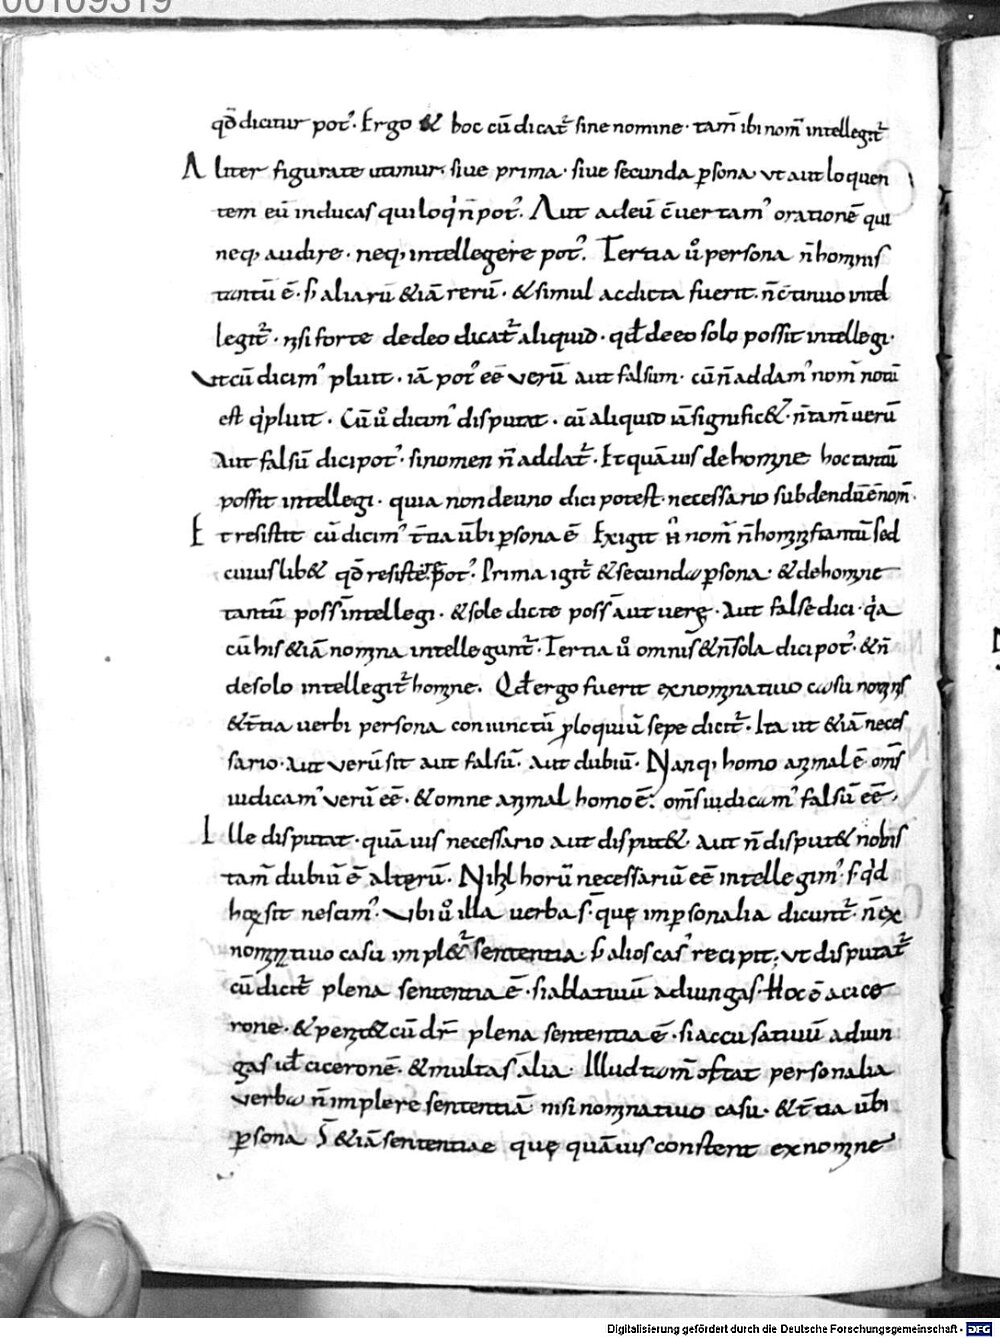 00109319
qđ dicitur pot᾽. Ergo & hoc cū dicat᷑ sine nomine· tam̄ ibi nom̄ intellegit᷑
Aliter figurate utimur siue prima· siue secunda ꝑsona ut aut loquen
tem eū inducas qui loq' n̄ pot᾽. Aut ad eū c̄uertam᾽ orationē qui
neq; audire· neq; intellegere pot᾽. Tertia ů persona n̄ hominis
tantū ē· s̄ aliarū &iā rerū· & simul ac dicta fuerit· n̄ c̄tinuo intel
legit᷑ nisi forte de deo dicat᷑ aliquid· qđ de eo solo possit intellegi·
ut cū dicim᾽ pluit· iā pot᾽ eē verū aut falsum· cū n̄ addam᾽ nom̄ notū
est q' pluit· Cū ů dicim᾽ disputat· cū aliquid iā signific&· n̄ tam̄ uerū
aut falsū dici pot᾽· si nomen n̄ addat᷑· Et quāuis de homine hoc tantū
possit intellegi· quia non de uno dici potest· necessario subdendū ē nom̄·
Et resistit cū dicim᾽ t̄tia ūbi ꝑsona ē Exigit n̄ nom̄ n̄ hominis tantū sed
cuiuslib& qđ resistē pot᾽· Prima igit᷑ & secunda ꝑsona· & de homine
tantū poss̄ intellegi· & sole dicte poss̄ aut uere· Aut false dici· q'a
cū his &iā nomina intelleguntꝛ᷑· Tertia ů omnis & n̄ sola dici pot᾽· & n̄
de solo intellegit᷑ homine. Qđ ergo fuerit ex nominatiuo casu nominis
& t̄tia uerbi persona coniunctū ꝓloquiū sepe dicit᷑· Ita ut &iā neces
sario· aut verū sit aut falsū· Aut dubiū· Nanq; homo animal ē om̄s
iudicam᾽ verū eē· & omne animal homo ē· om̄s iudicam᾽ falsū eē·
Ille disputat· quāuis necessario aut disput& aut n̄ disput& nobis
tam̄ dubiū ē alterū· Nihil horū necessariū eē intellegim᾽· s· q'd
horū sit nescim᾽· Vbi ů illa uerba s̄· que imꝑsonalia dicunt᷑· n̄ ex
nominatiuo casu impl&᷑ sententia s̄ alios cas᾽ recipit· ut disputat᷑
cū dicit᷑ plena sententia ē· si ablatiuū adiungas· Hoc ē a cice
rone· & penit& cū dr̄ plena sententia ē· si accusatiuū adiun
gas ut̄ ciceronē· & multa s̄ alia· Illud tam̄ ostat personalia
verba n̄ implere sententiā nisi nominatiuo casu· & t̄tia ūbi
ꝑsona S̄ &iā sententiae que quāuis constent ex nomine
Digitalisierung gefördert durch die Deutsche Forschungsgemeinschaft - DFG